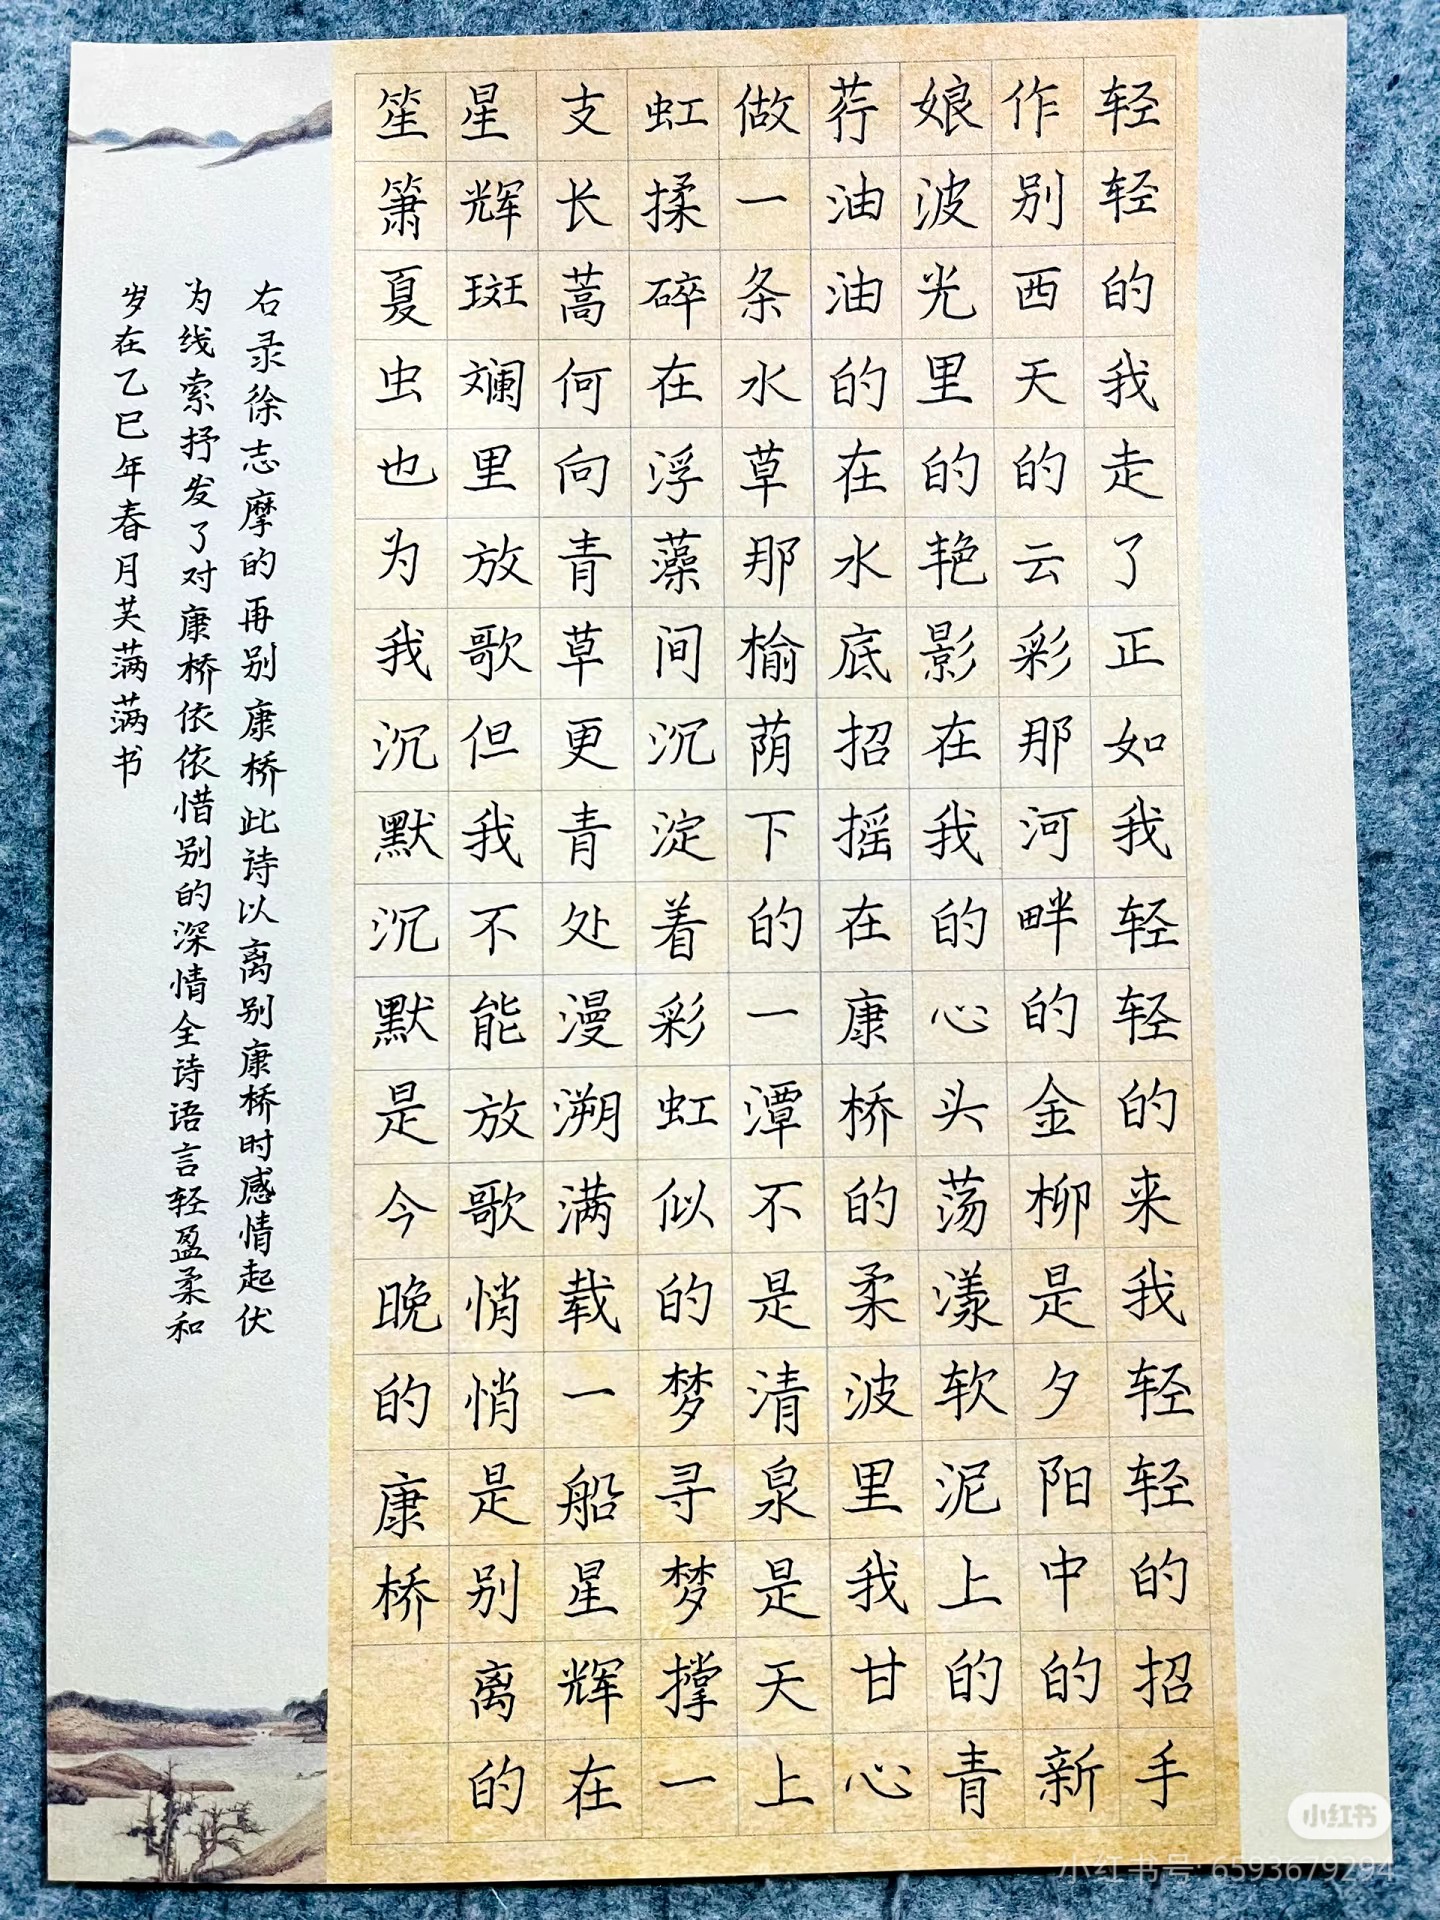 轻轻的我走了正如我轻轻的来我轻轻的招手
作别西天的云彩那河畔的金柳是夕阳中的新
娘波光里的艳影在我的心头荡漾软泥上的青
荇油油的在水底招摇在康桥的柔波里我甘心
做一条水草那榆荫下的一潭不是清泉是天上
虹揉碎在浮藻间沉淀着彩虹似的梦寻梦撑一
支长蒿何向青草更青处漫溯满载一船星辉在
星辉斑斓里放歌但我不能放歌悄悄是别离的
笙箫夏虫也为我沉默沉默是今晚的康桥
右录徐志摩的再别康桥此诗以离别康桥时感情起伏
为线索抒发了对康桥依依惜别的深情全诗语言轻盈柔和
岁在乙巳年春月芙满满书
小红书
小红书号: 6593679294